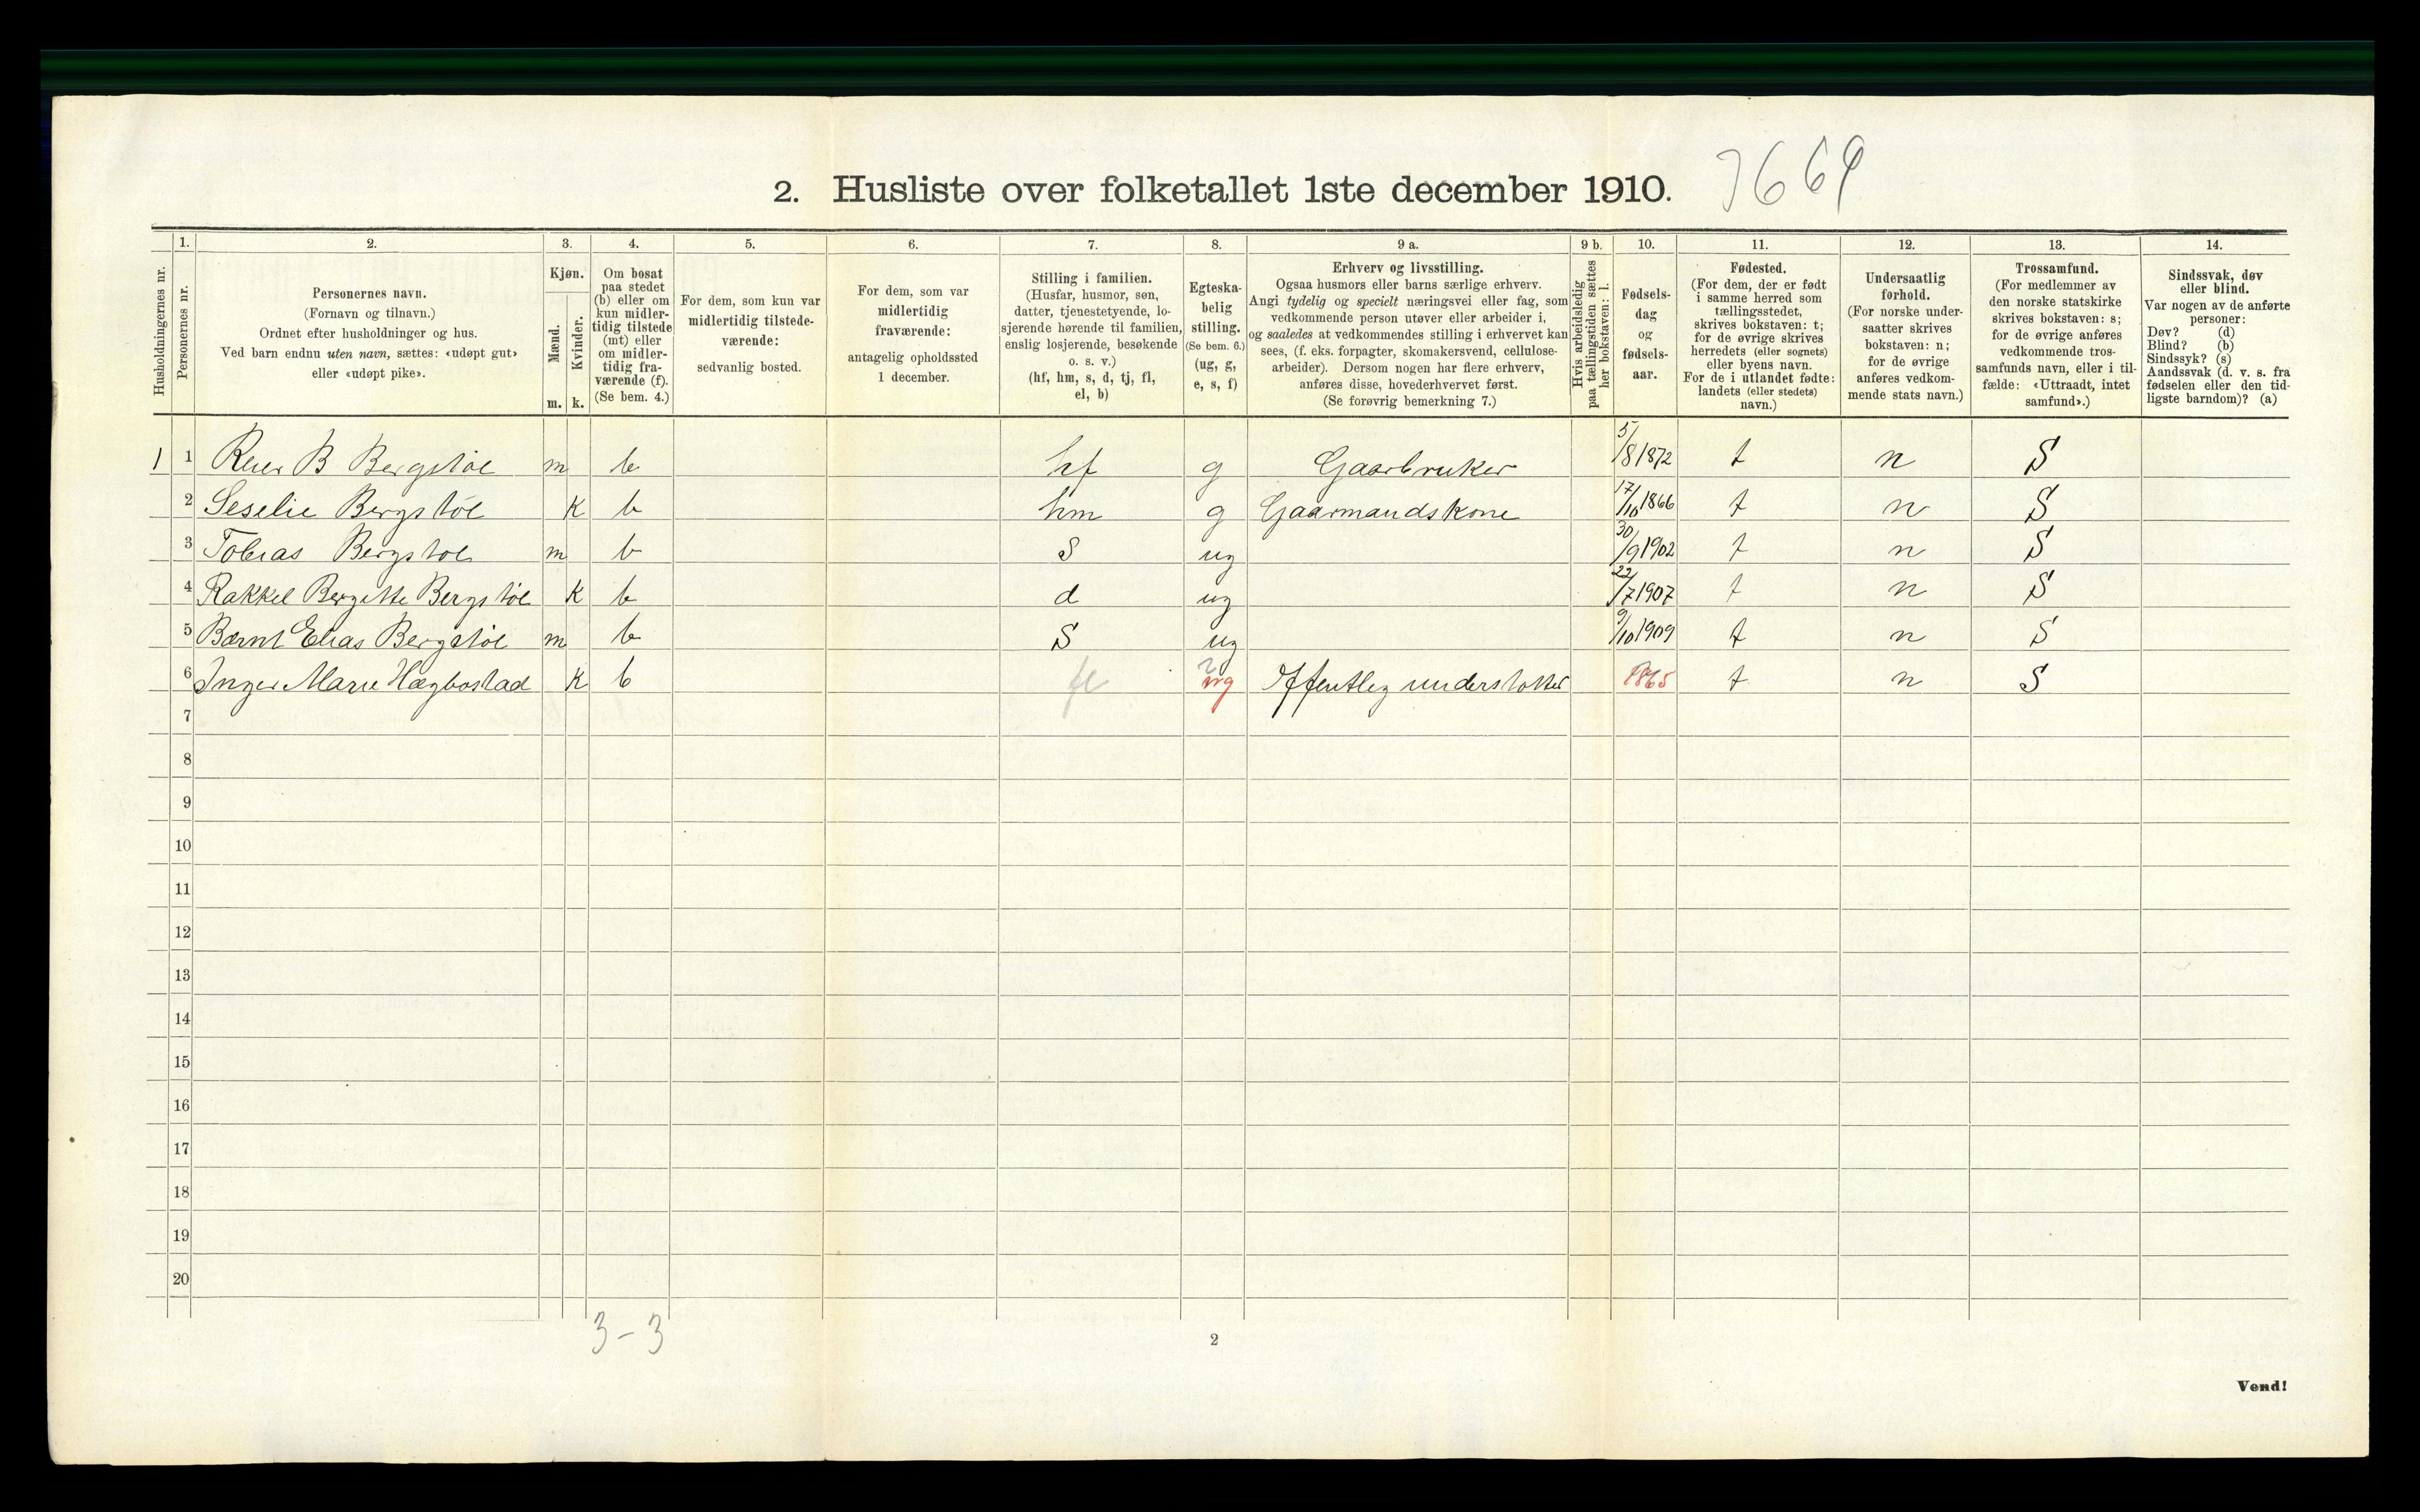 2. Husliste over folketallet 1ste december 1910. 7669
Husholdningernes nr.
1.
Personernes nr.
2.
Personernes navn.
(Fornavn og tilnavn.)
Ordnet efter husholdninger og hus.
Ved barn endnu uten navn, sættes: «udøpt gut»
eller «udøpt pike».
3.
Kjøn.
Mænd.
Kvinder.
m. k.
4.
Om bosat
paa stedet
(b) eller om
kun midler-
tidig tilstede
(mt) eller
om midler-
tidig fra-
værende (f).
(Se bem. 4.)
5.
For dem, som kun var
midlertidig tilstede-
værende:
sedvanlig bosted.
6.
For dem, som var
midlertidig
fraværende:
antagelig opholdssted
1 december.
7.
Stilling i familien.
(Husfar, husmor, søn,
datter, tjenestetyende, lo-
sjerende hørende til familien,
enslig losjerende, besøkende
o. s. v.)
(hf, hm, s, d, tj, fl,
el, b)
8.
Egteska-
belig
stilling.
(Se bem. 6.)
(ug, g,
e, s, f)
9 a.
Erhverv og livsstilling.
Ogsaa husmors eller barns særlige erhverv.
Angi tydelig og specielt næringsvei eller fag, som
vedkommende person utøver eller arbeider i,
og saaledes at vedkommendes stilling i erhvervet kan
sees, (f. eks. forpagter, skomakersvend, cellulose-
arbeider). Dersom nogen har flere erhverv,
anføres disse, hovederhvervet først.
(Se forøvrig bemerkning 7.)
9 b.
Hvis arbeidsledig
paa tællingstiden sættes
her bokstaven: l.
10.
Fødsels-
dag
og
fødsels-
aar.
11.
Fødested.
(For dem, der er født
i samme herred som
tællingsstedet,
skrives bokstaven: t;
for de øvrige skrives
herredets (eller sognets)
eller byens navn.
For de i utlandet fødte:
landets (eller stedets)
navn.)
12.
Undersaatlig
forhold.
(For norske under-
saatter skrives
bokstaven: n;
for de øvrige
anføres vedkom-
mende stats navn.)
13.
Trossamfund.
(For medlemmer av
den norske statskirke
skrives bokstaven: s;
for de øvrige anføres
vedkommende tros-
samfunds navn, eller i til-
fælde: «Uttraadt, intet
samfund».)
14.
Sindssvak, døv
eller blind.
Var nogen av de anførte
personer:
Døv? (d)
Blind? (b)
Sindssyk? (s)
Aandssvak (d. v. s. fra
fødselen eller den tid-
ligste barndom)? (a)
1 1 B Bergstøl m b hf g Gaarbruker 5/8 1872 t n S
2 Seselie Bergstøl K b hm g Gaarmandskone 17/10 1866 t n S
3 Tobias Bergstøl m b S ug 30/9 1902 t n S
4 Rakkel Bergitte Bergstøl K b d ug 22/7 1907 t n S
5 Bærnt Elias Bergstøl m b S ug 9/10 1909 t n S
6 Inger Marie Hægbostad K b fl ug Offentleg understøttet 1865 t n S
7
8
9
10
11
12
13
14
15
16
17
18
19
20
3-3
2
Vend!